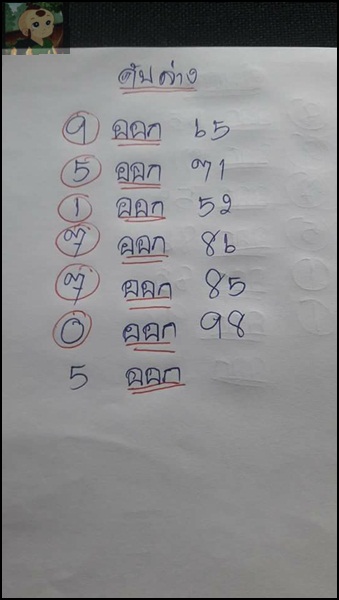 ดับล่าง
9 ออก 65
5 ออก 71
1 ออก 52
7 ออก 86
7 ออก 85
0 ออก 98
5 ออก